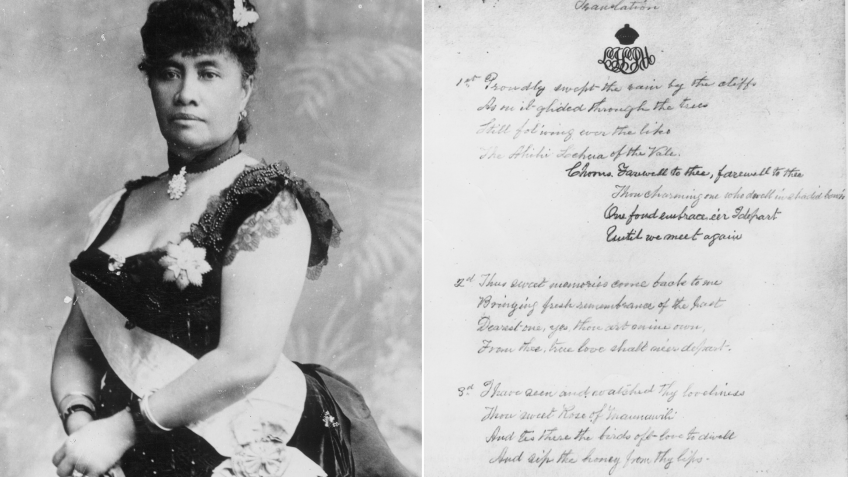 Translation
1st Proudly swept the rain by the cliffs
As on it glided through the trees
Still following ever the liko
The Ahihi Lehua of the Vale.
Chorus Farewell to thee, farewell to thee
Thou charming one who dwell in shaded bowers
One fond embrace e'er I depart
Until we meet again
2d Thus sweet memories come back to me
Bringing fresh remembrance of the past
Dearest one, yes, thou art mine own,
From thee, true love shall ne'er depart.
3d I have seen and watched thy loveliness
Thou sweet Rose of Maunawili
And tis there the birds oft love to dwell
And sip the honey from thy lips.